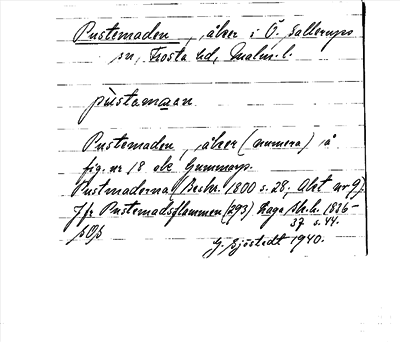 Pustemaden, åker i Ö. Sallerups
sn, Frosta hd, Malm. l.
pùstamaan
Pustemaden, åker (numera) å
fig. nr 18 ok Gummarp.
Pustmaderna, Beskr. 1800 s. 28, Akt nr 9).
Jfr Pustemadsflammen (293) Laga sk. h. 1836-
37 s. 44.
G. Sjöstedt 1940.